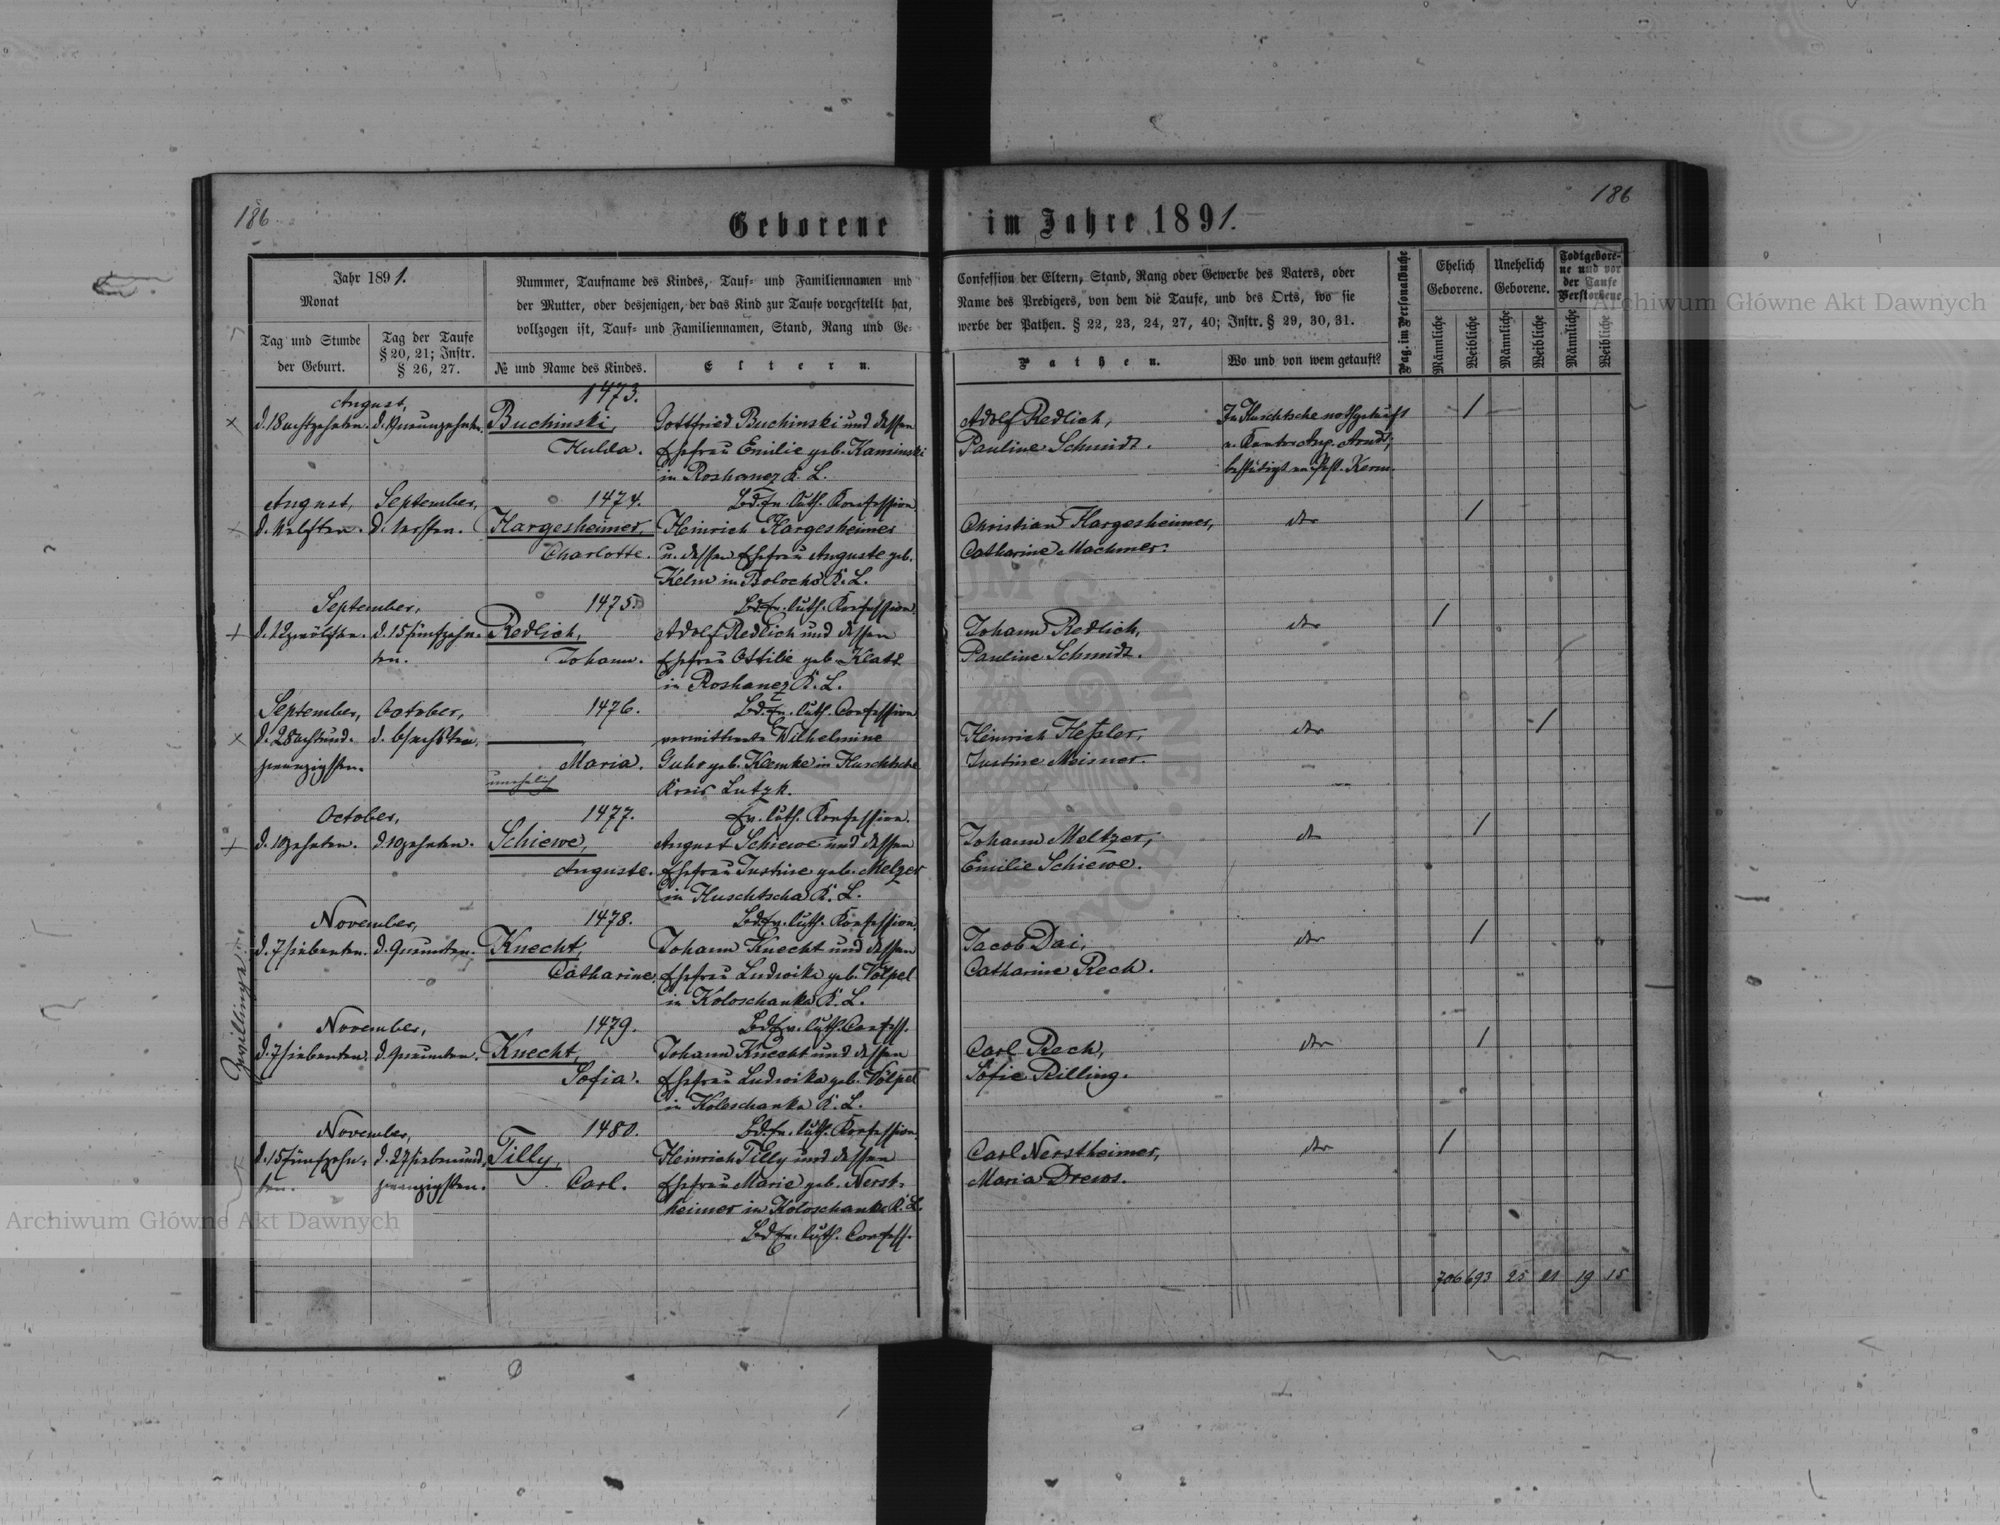 186
186
Geborene im Jahre 1891.
Jahr 1891.
Monat
Tag und Stunde der Geburt.
Tag der Taufe § 20, 21; Instr. § 26, 27.
Nummer, Taufname des Kindes, Tauf- und Familiennamen und
der Mutter, oder desjenigen, der das Kind zur Taufe vorgestellt hat,
vollzogen ist, Tauf- und Familiennamen, Stand, Rang und Ge-
№ und Name des Kindes.
Eltern.
Confession der Eltern, Stand, Rang oder Gewerbe des Vaters, oder
Name des Predigers, von dem die Taufe, und des Orts, wo sie
werbe der Pathen. § 22, 23, 24, 27, 40; Instr. § 29, 30, 31.
Pathen.
Wo und von wem getauft?
Pag. im Personalbuche
Ehelich Geborene.
Unehelich Geborene.
Todtgeborene und vor der Taufe Verstorbene
Männliche
Weibliche
Männliche
Weibliche
Männliche
Weibliche
August,
1473.
d. 18 achtzehnten. d. 19 neunzehnten. Buchinski, Gottfried Buchinski und dessen Adolf Redlich, In Kuschtsche nothgetauft
Hulda. Ehefrau Emilie geb. Kaminski Pauline Schmidt. v. Kantor Aug. Arndt;
in Roshanez K. L. bestätigt v. Past. Kerm.
August, September, 1474. Bd. Ev. luth. Konfession
Hargesheimer, Heinrich Hargesheimer Christian Hargesheimer, dto
Charlotte. u. dessen Ehefrau Auguste geb. Catharine Machmer.
Kelm in Bolocho K. L.
September, 1475. Bd. Ev. luth. Konfession.
d. 12 zwölften. d. 15 fünfzehn- Redlich, Adolf Redlich und dessen Johann Redlich, dto
ten. Johann. Ehefrau Ottilie geb. Klatt Pauline Schmidt.
in Roshanez K. L.
September, October, 1476. Bd. Ev. luth. Confession
d. 28 achtund- d. 6 sechsten. verwittwete Wilhelmine Heinrich Heßler, dto
zwanzigsten. Maria. geb. Klemke in Kuschtsche Justine Meisner.
unehelich Kreis Lutzk.
October, 1477. Ev. luth. Konfession.
d. 10 zehnten. d. 10 zehnten. Schiewe, August Schiewe und dessen Johann Meltzer, dto
Auguste. Ehefrau Justine geb. Melzer Emilie Schiewe.
in Kuschtscha K. L.
November, 1478. Bd. Ev. luth. Konfession.
Zwillinge
d. 7 siebenten. d. 9 neunten. Knecht, Johann Knecht und dessen Jacob Dai, dto
Catharine. Ehefrau Ludwika geb. Völpel Catharine Rech.
in Koloschanka K. L.
November, 1479. Bd. Ev. luth. Confess.
d. 7 siebenten. d. 9 neunten. Knecht, Johann Knecht und dessen Carl Rech, dto
Sofia. Ehefrau Ludwika geb. Völpel Sofie Rilling.
in Koloschanka K. L.
November, 1480. Bd. Ev. luth. Konfession
d. 15 fünfzehn- d. 27 siebenund- Tilly, Heinrich Tilly und dessen Carl Nerstheimer, dto
ten. zwanzigsten. Carl. Ehefrau Marie geb. Nerst- Maria Drews.
heimer in Koloschanka K. L.
Bd. Ev. luth. Confess.
706 693 25 21 19 15
Archiwum Główne Akt Dawnych
Archiwum Główne Akt Dawnych